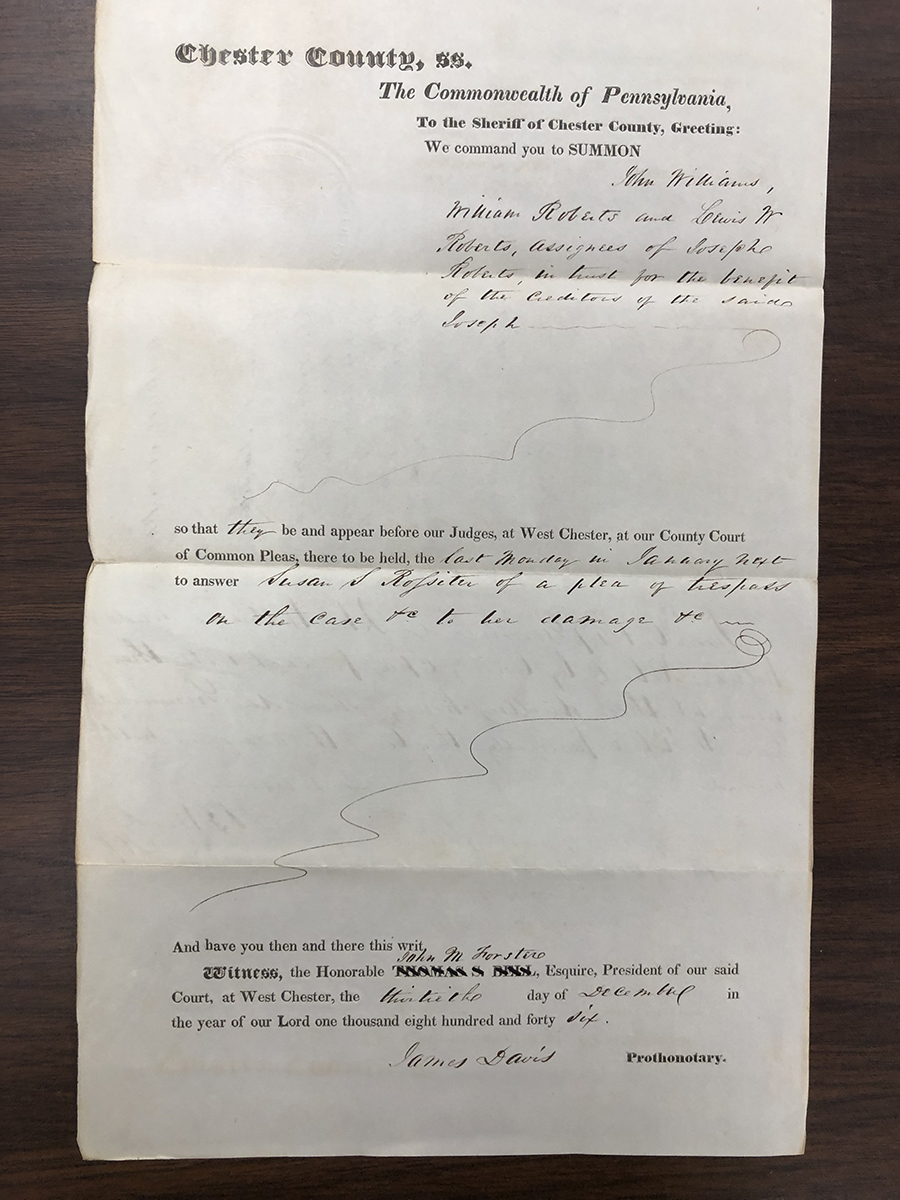 Chester County, ss.
The Commonwealth of Pennsylvania,
To the Sheriff of Chester County, Greeting:
We command you to SUMMON
John Williams,
William Roberts and Lewis W
Roberts, assignees of Joseph
Roberts, in trust for the benefit
of the creditors of the said
Joseph
so that they be and appear before our Judges, at West Chester, at our County Court
of Common Pleas, there to be held, the last Monday in January next
to answer Susan S Rossiter of a plea of trespass
on the case &c to her damage &c
And have you then and there this writ,
John M Forster
Witness, the Honorable THOMAS S BELL, Esquire, President of our said
Court, at West Chester, the thirtieth day of December in
the year of our Lord one thousand eight hundred and forty six.
James Davis Prothonotary.